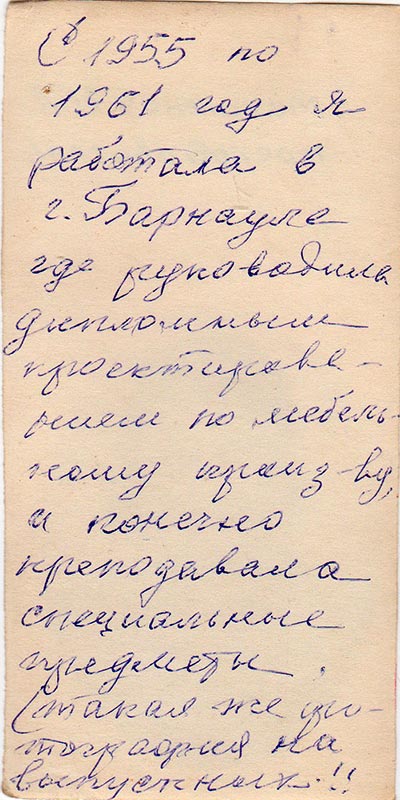 С 1955 по
1961 год я
работала в
г. Барнауле
где руководила
дипломным
проектирова-
нием по мебель-
ному произ-ву,
и конечно
преподавала
специальные
предметы.
(такая же фо-
тография на
выпускных!!